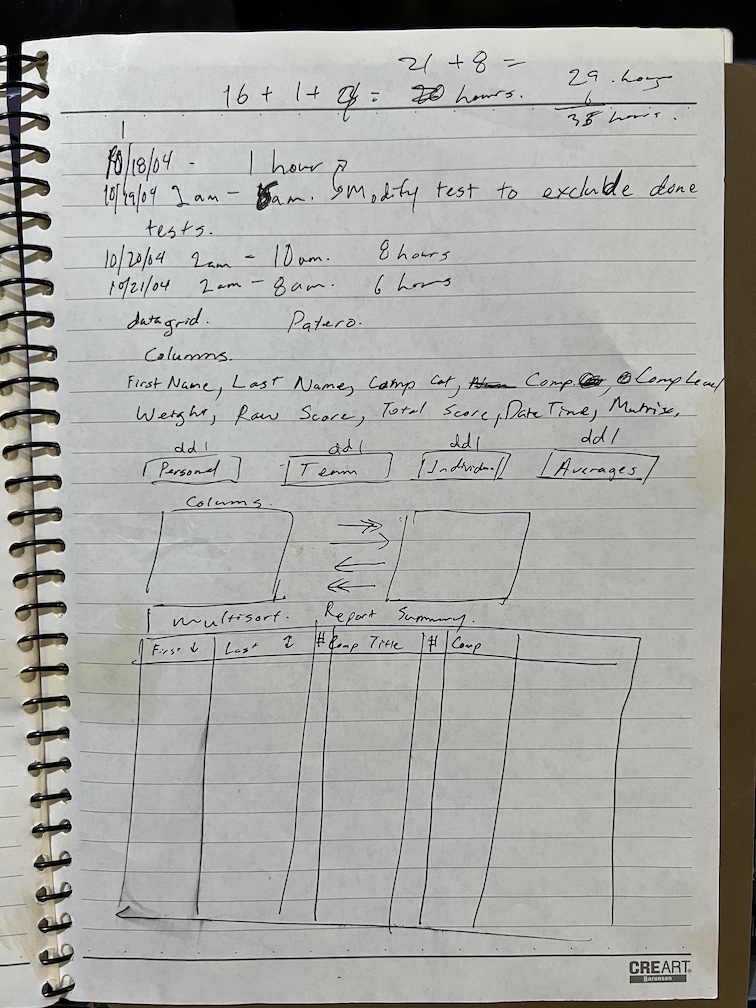 21 + 8 =
16 + 1 + 4 = 20 hours.
29 hours
6
35 hours.
10/18/04 - 1 hour
10/19/04 2am - 5am. Modify test to exclude done
tests.
10/20/04 2am - 10am. 8 hours
10/21/04 2am - 8am. 6 hours
datagrid. Patero.
Columns.
First Name, Last Name, Comp Cat, Comp Comp Level
Weight, Raw Score, Total Score, Date Time, Matrix,
ddl ddl ddl ddl
Personal Team Individual Averages
Colums.
multisort. Report Summary.
First ↓ Last ↕ # Comp Title # Comp
CREART
Barunson